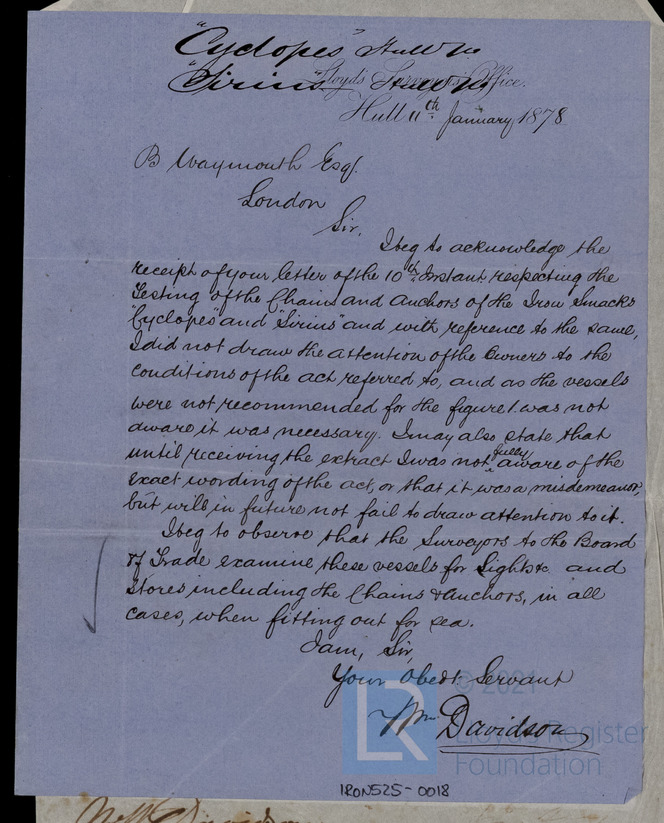 "Cyclopes" Hull
"Sirius" Hull
Lloyd's Surveyors' Office.
Hull 11th January 1878
B Waymouth Esqr.
London
Sir,
I beg to acknowledge the
receipt of your letter of the 10th Instant respecting the
Testing of the Chains and Anchors of the Iron Smacks
"Cyclopes" and "Sirius" and with reference to the same,
I did not draw the attention of the Owners to the
conditions of the act referred to, and as the vessels
were not recommended for the figure 1 was not
aware it was necessary. I may also state that
until receiving the extract I was not fully aware of the
exact wording of the act, or that it was a misdemeanor,
but will in future not fail to draw attention to it.
I beg to observe that the Surveyors to the Board
of Trade examine these vessels for Lights &c and
Stores including the Chains & Anchors, in all
cases, when fitting out for sea.
I am, Sir,
Your Obedt. Servant
Wm Davidson
© 2021
LR
Lloyd's Register
Foundation
IRON525-0018
Davidson